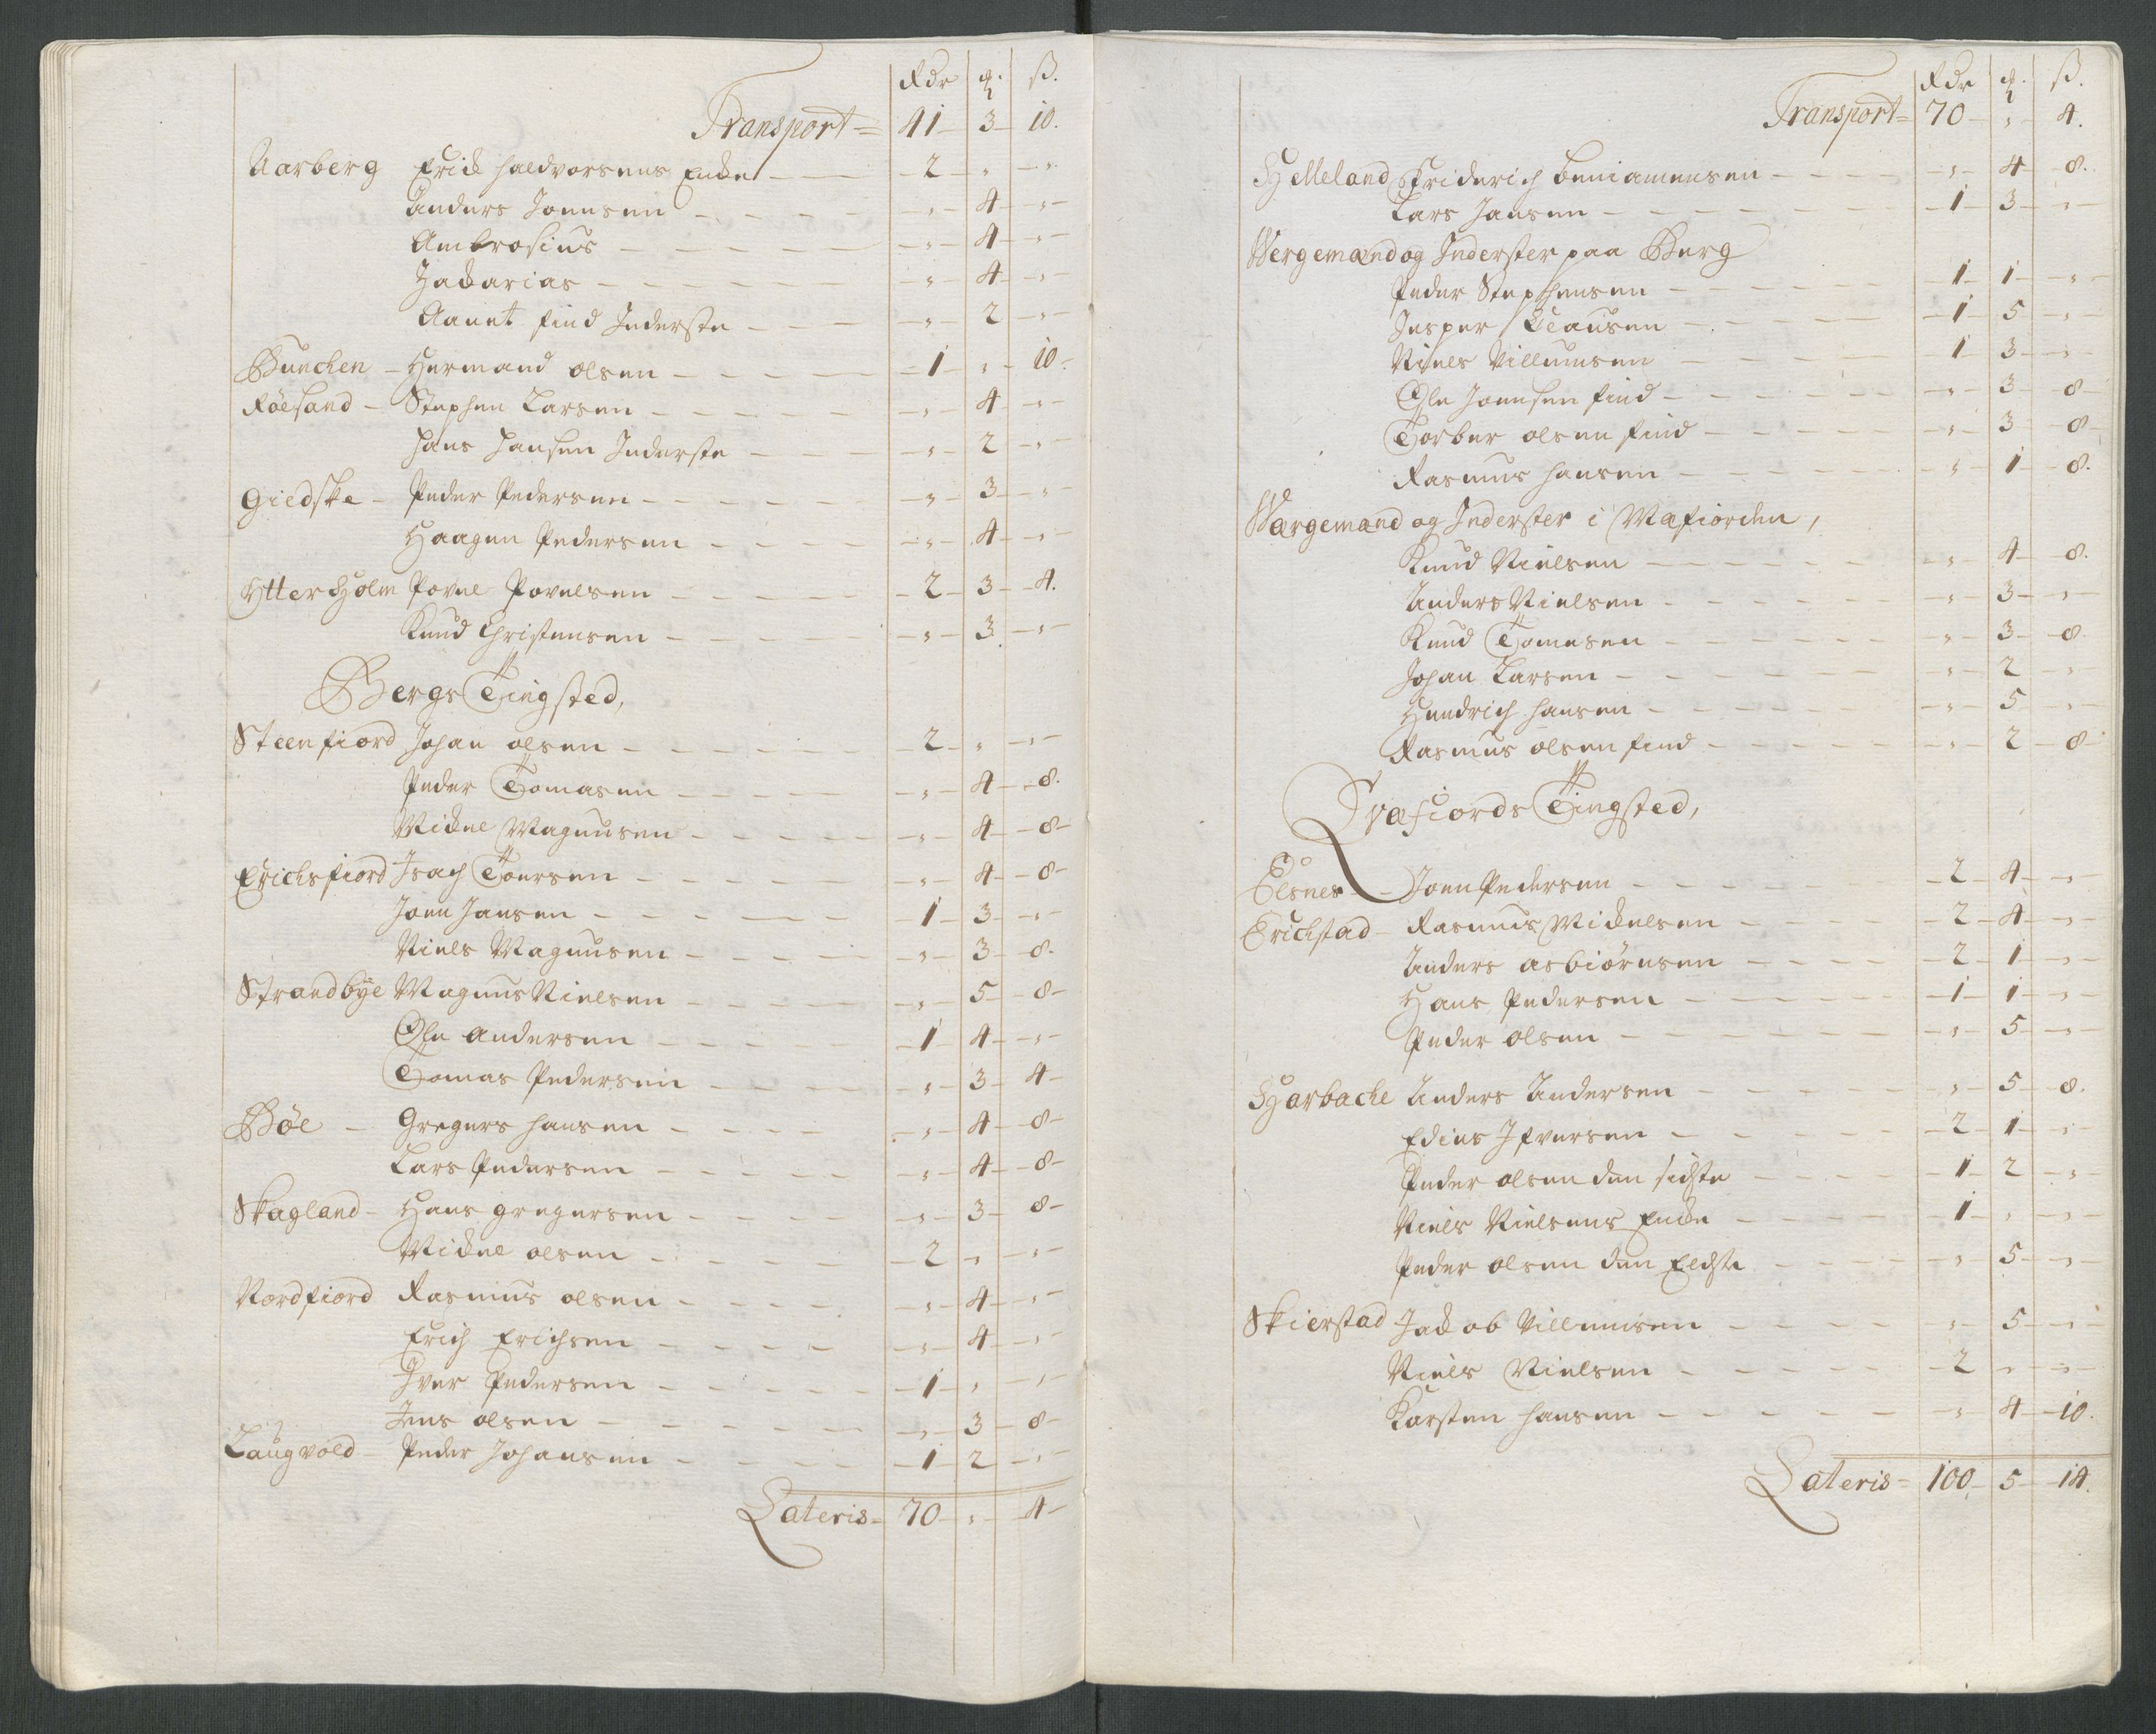 Rdr q. ß.
Transport = 41 – 3 – 10.
Aarberg Erick haldvorsens Encke – 2 – „ – „
Anders Joensen – „ – 4 – „
Ambrosius – „ – 4 – „
Zackarias – „ – 4 – „
Aanet find Inderste – „ – 2 – „
Bunchen – Hermand olsen – 1 – „ – 10 –
Røesand – Stephen Larsen – „ – 4 – „
Hans Hansen Inderste – „ – 2 – „
Giedske – Peder Pedersen – „ – 3 – „
Haagen Pedersen – „ – 4 – „
Ytterholm Povel Povelsen – 2 – 3 – 4.
Knud Christensen – „ – 3 – „
Bergs Tingsted,
Steenfiord Johan olsen – 2 – „ – „
Peder Tomasen – „ – 4 – 8.
Mickel Magnusen – „ – 4 – 8 –
Erichsfiord Isach Toersen – „ – 4 – 8 –
Joen Jansen – 1 – 3 – „
Niels Magnusen – „ – 3 – 8.
Strandbÿe Magnus Nielsen – „ – 5 – 8 –
Ole Andersen – 1 – 4 – „
Tomas Pedersen – „ – 3 – 4 –
Bøe – Gregers hansen – „ – 4 – 8 –
Lars Pedersen – „ – 4 – 8 –
Skagland – Hans gregersen – „ – 3 – 8 –
Mickel olsen – 2 – „ – „
Nordfiord Rasmus olsen – „ – 4 – „
Erich Erichsen – „ – 4 – „
Iver Pedersen – 1 – „ – „
Jens olsen – „ – 3 – 8 –
Laugvold Peder Johansen – 1 – 2 – „
Lateris = 70 – „ – 4 –
Rdr q. ß.
Transport = 70 – „ – 4.
Helleland Friderich beniamensen – „ – 4 – 8.
Lars Jansen – 1 – 3 – „
Wergemænd og Inderster paa Berg
Peder Stephensen – 1 – 1 – „
Jesper Clausen – 1 – 5 – „
Niels Villumsen – 1 – 3 – „
Ole Joensen find – „ – 3 – 8 –
Torber olsen find – „ – 3 – 8 –
Rasmus hansen – „ – 1 – 8.
Wærgemænd og Inderster i Mefiorden,
Knud Nielsen – „ – 4 – 8.
Anders Nielsen – „ – 3 – „
Knud Tomesen – „ – 3 – 8.
Johan Larsen – „ – 2 – „
Hendrich hansen – „ – 5 – „
Rasmus olsen find – „ – 2 – 8 –
Qvæfiords Tingsted,
Elsnes – Joen Pedersen – 2 – 4 – „
Erichstad – Rasmus Mickelsen – 2 – 4 – „
Anders asbiørnsen – 2 – 1 – „
Hans Pedersen – 1 – 1 – „
Peder olsen – „ – 5 – „
Harbache Anders Andersen – „ – 5 – 8.
Edies Ifversen – 2 – 1 – „
Peder olsen den sidste – 1 – 2 – „
Niels Nielsens Encke – 1 – „ – „
Peder olsen den Eldste – „ – 5 – „
Skierstad Jackob Villumsen – „ – 5 – „
Niels Nielsen – 2 – „ – „
Karsten hansen – „ – 4 – 10.
Lateris = 100 – 5 – 14.